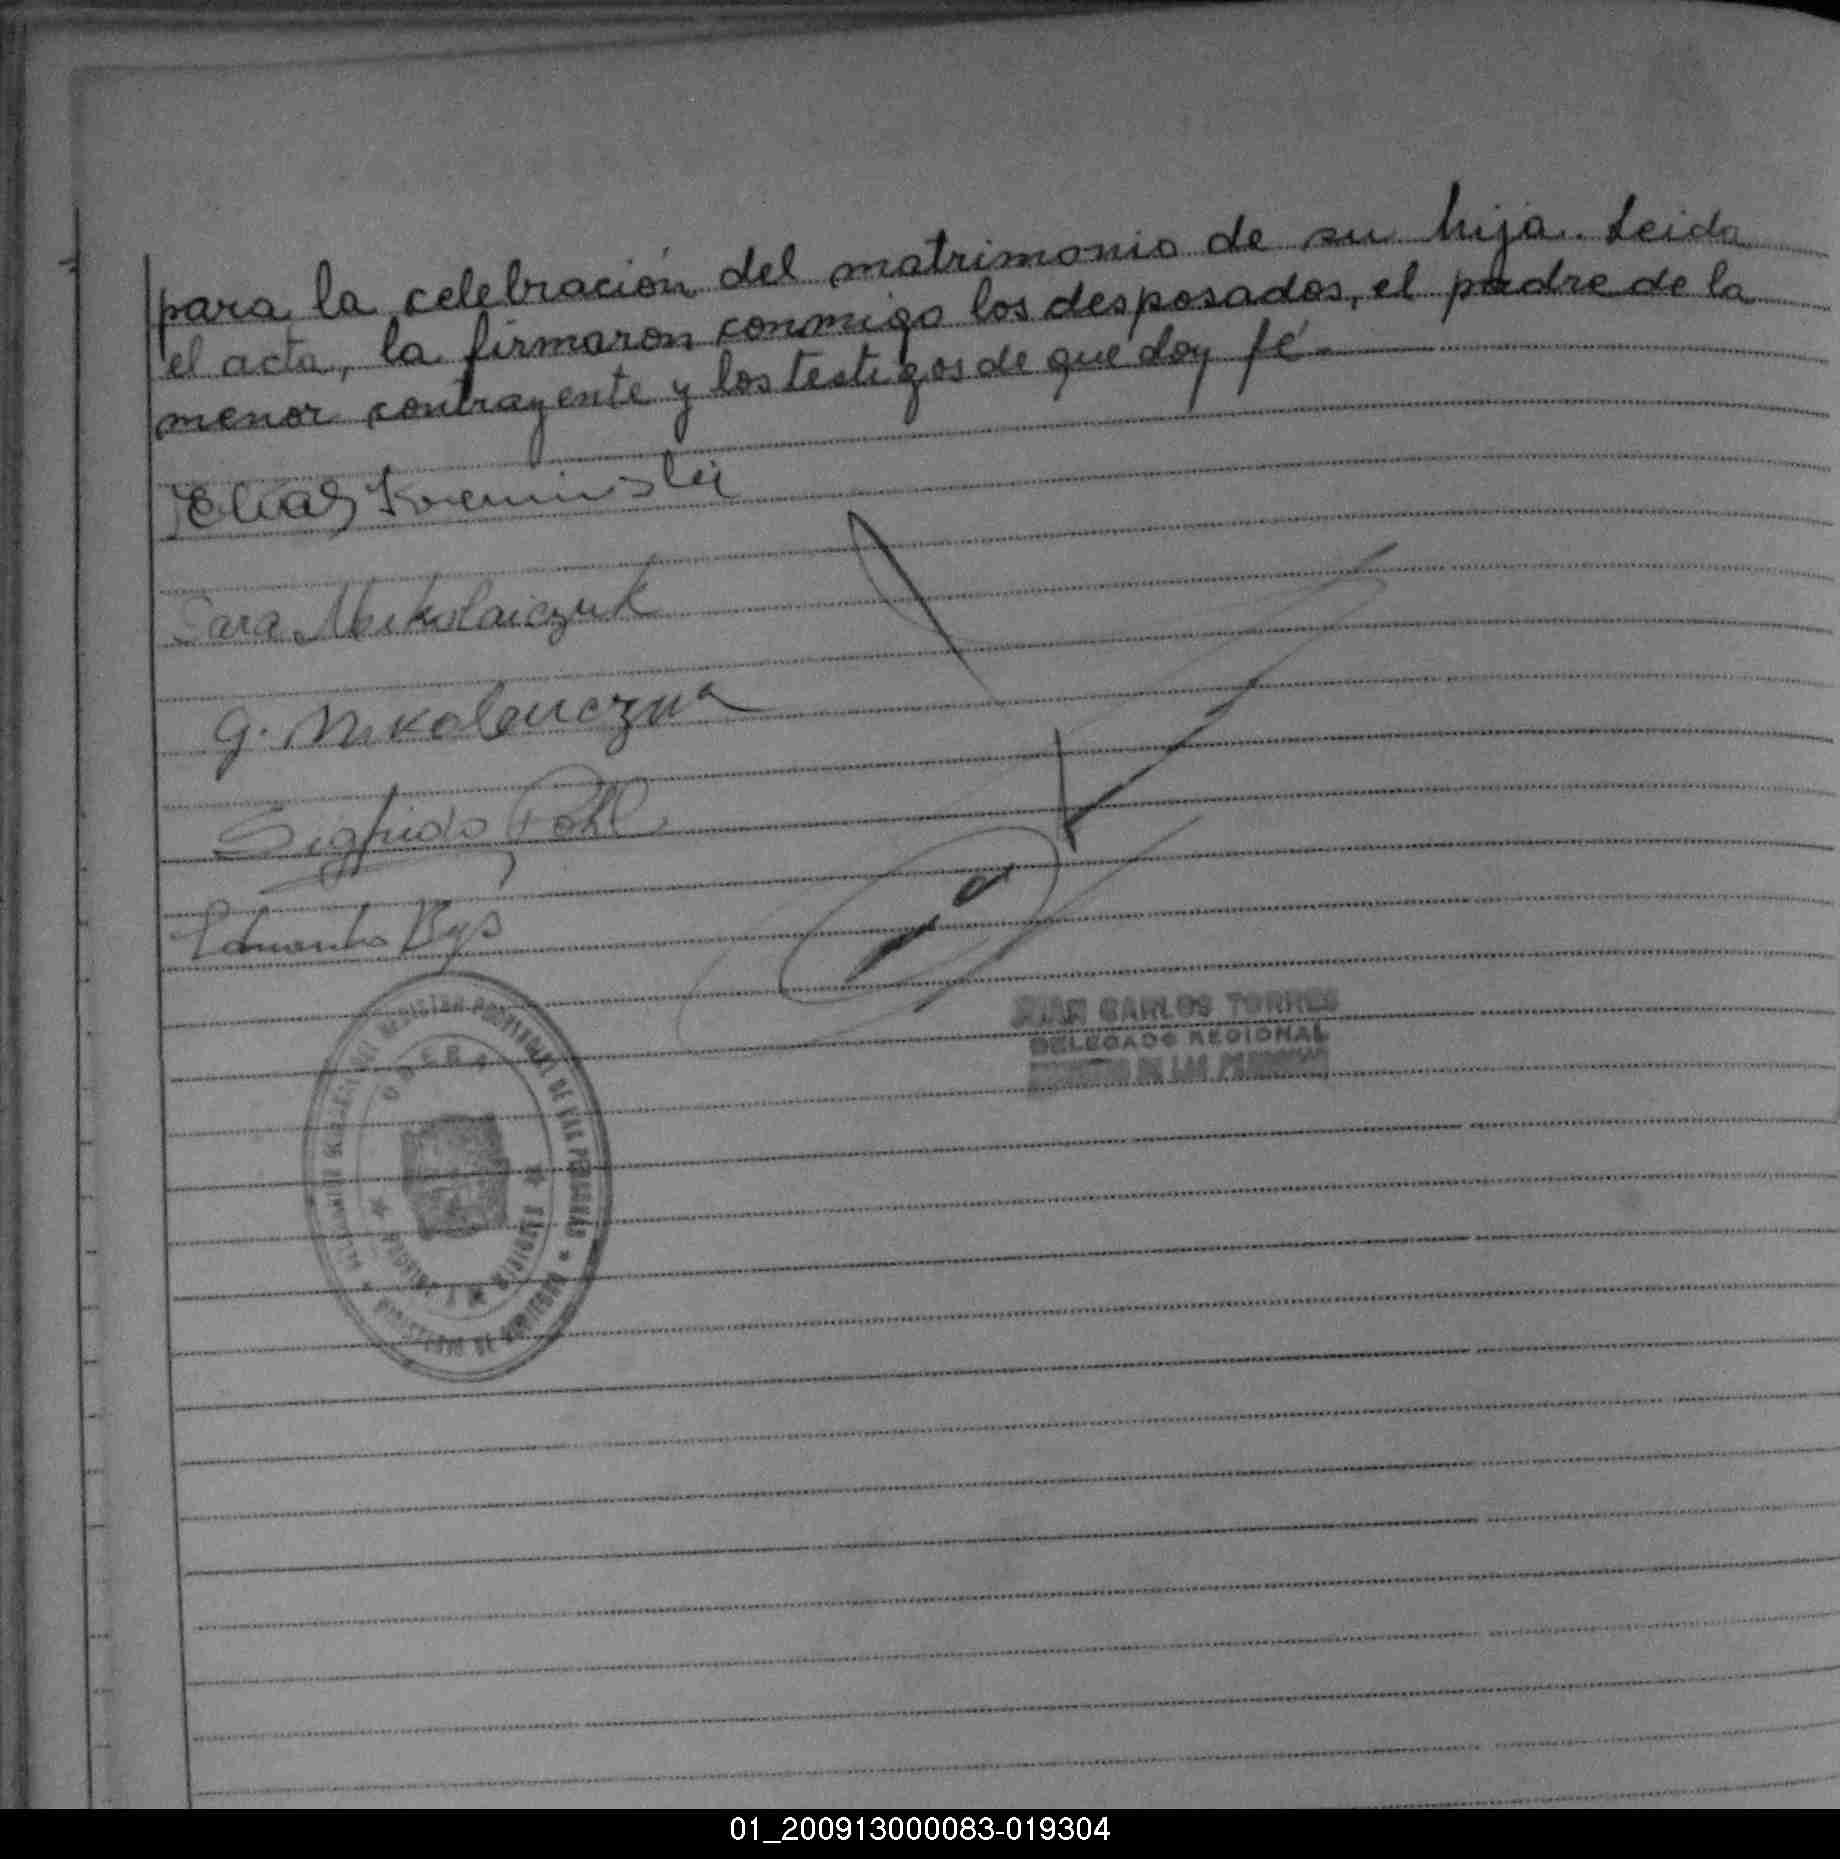 para la celebración del matrimonio de su hija. Leida
el acta, la firmaron conmigo los desposados, el padre de la
menor contrayente y los testigos de que doy fé.-
Elias
Sara Mikolaiczuk
G. Mikolaiczuk
Sigfrido Pohl
Eduardo Bys
JUAN CARLOS TORRES
DELEGADO REGIONAL
REGISTRO DE LAS PERSONAS
REGISTRO PROVINCIAL DE LAS PERSONAS
OBERA
MISIONES
01_200913000083-019304